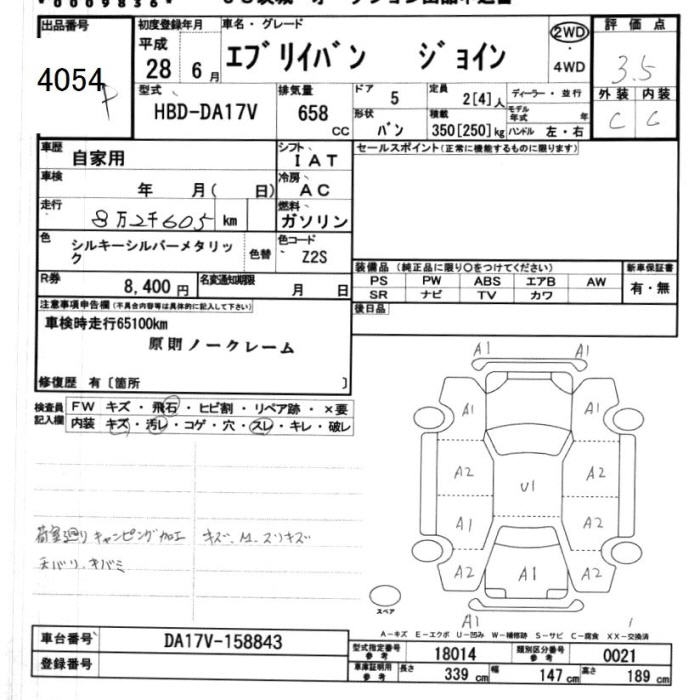 *0009836*
出品番号
4054
初度登録年月
平成
28年6月
車名・グレード
エブリイバン ジョイン
2WD
・
4WD
評価点
3.5
外装 内装
C C
型式
HBD-DA17V
排気量
658 CC
ドア 5
形状 バン
定員 2[4]人
積載 350[250]kg
ディーラー・並行
モデル年式 年
ハンドル 左・右
車歴 自家用
シフト IAT
車検 年 月( 日)
冷房 AC
走行 8万2千605 km
燃料 ガソリン
色 シルキーシルバーメタリック
色替
色コード Z2S
R券 8,400円
名変通知期限 月 日
セールスポイント(正常に機能するものに限ります)
装備品(純正品に限り○をつけてください)
PS PW ABS エアB AW
SR ナビ TV カワ
新車保証書
有・無
後日品
注意事項申告欄(不具合内容等は具体的に記入して下さい)
車検時走行65100km
原則ノークレーム
修復歴 有〔箇所 〕
検査員記入欄
FW キズ・飛石・ヒビ割・リペア跡・×要
内装 キズ・汚レ・コゲ・穴・スレ・キレ・破レ
荷室廻りキャンピング加工 キズ、M、スリキズ
天バリ、キバミ
A1 A1
A1 A1
A2 U1 A2
A1 A2
A2 A1 A2
A1
スペア
A-キズ E-エクボ U-凹み W-補修跡 S-サビ C-腐食 XX-交換済
車台番号 DA17V-158843
登録番号
型式指定番号 参考 18014
類別区分番号 参考 0021
車庫証明用 参考 長さ 339 cm 幅 147 cm 高さ 189 cm